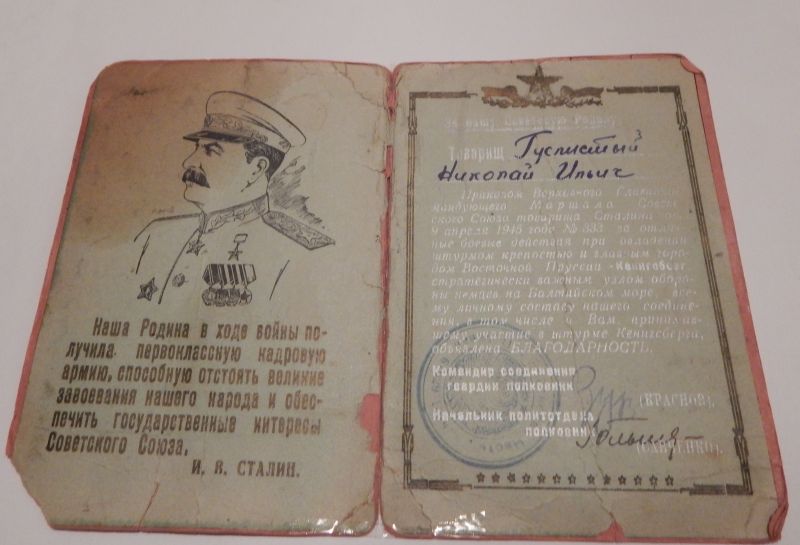 Наша Родина в ходе войны по-
лучила первоклассную кадровую
армию, способную отстоять великие
завоевания нашего народа и обес-
печить государственные интересы
Советского Союза.
И. В. СТАЛИН.
За нашу Советскую Родину
Товарищ Гуслистый
Николай Ильич
Приказом Верховного Главноко-
мандующего Маршала Совет-
ского Союза товарища Сталина от
9 апреля 1945 года № 333 за отлич-
ные боевые действия при овладении
штурмом крепостью и главным горо-
дом Восточной Пруссии -Кенигсберг-
стратегически важным узлом оборо-
ны немцев на Балтийском море, все-
му личному составу нашего соедине-
ния, в том числе и Вам, принимав-
шему участие в штурме Кенигсберга,
объявлена БЛАГОДАРНОСТЬ.
Командир соединения
гвардии полковник
(КРАСНОВ).
Начальник политотдела
полковник
(САВЧЕНКО)